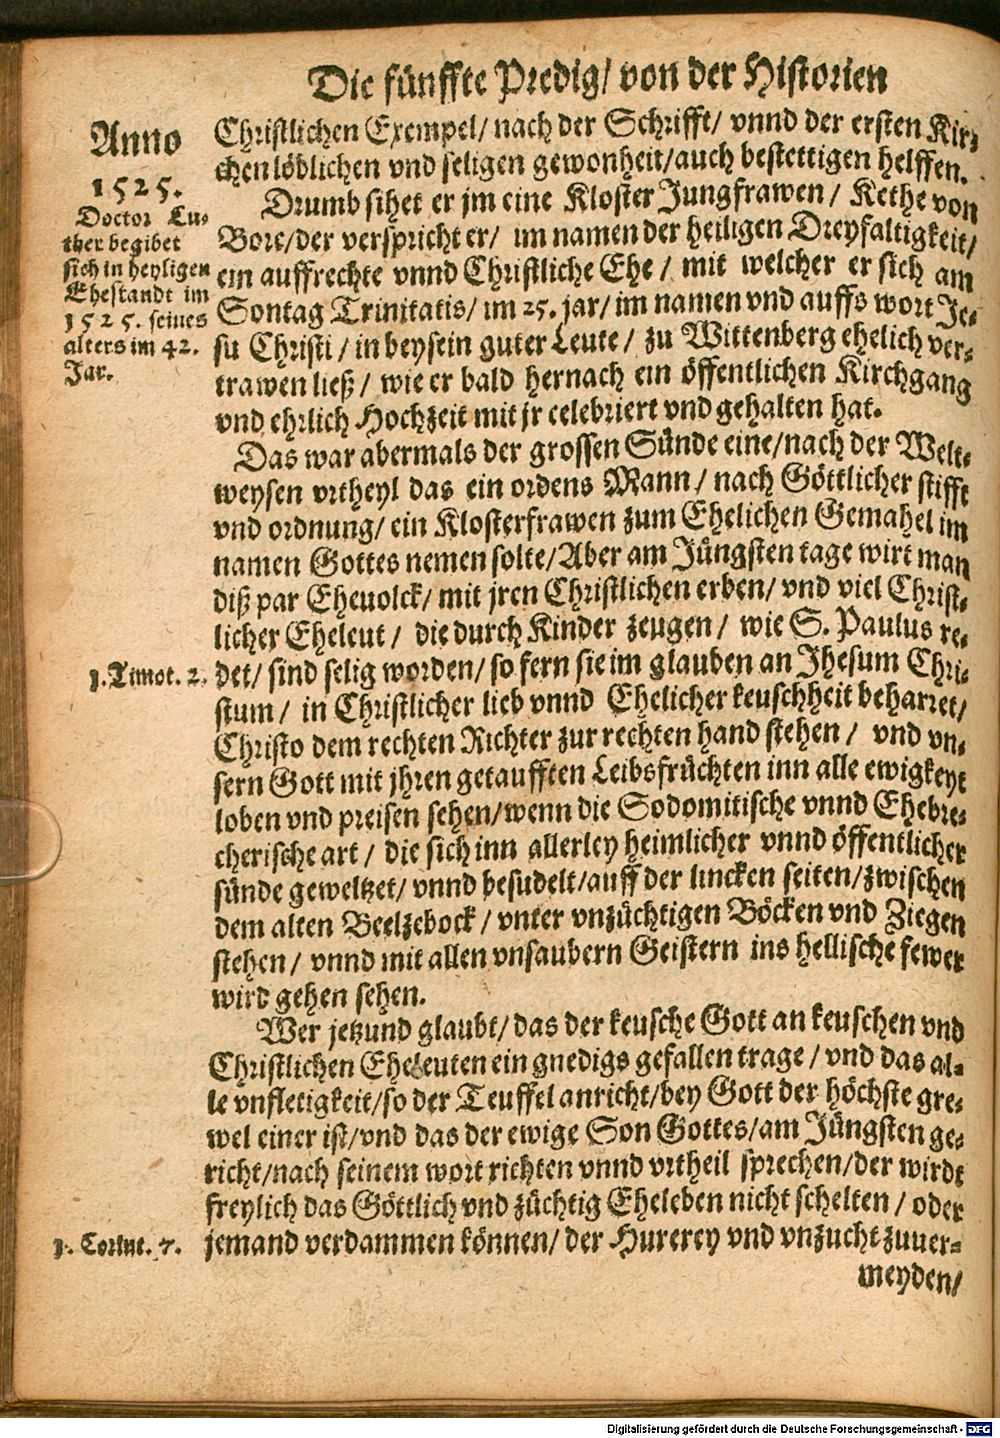 Die fünffte Predig/ von der Historien
Anno
1525.
Doctor Lu-
ther begibet
sich in heyligen
Ehestandt im
1525. seines
alters im 42.
Jar.
Christlichen Exempel/ nach der Schrifft/ vnnd der ersten Kir-
chen löblichen vnd seligen gewonheit/ auch bestettigen helffen.
Drumb sihet er jm eine Kloster Jungfrawen/ Kethe von
Bore/ der verspricht er/ im namen der heiligen Dreyfaltigkeit/
ein auffrechte vnnd Christliche Ehe/ mit welcher er sich am
Sontag Trinitatis/ im 25. jar/ im namen vnd auffs wort Je-
su Christi/ in beysein guter Leute/ zu Wittenberg ehelich ver-
trawen ließ/ wie er bald hernach ein öffentlichen Kirchgang
vnd ehrlich Hochzeit mit jr celebriert vnd gehalten hat.
Das war abermals der grossen Sünde eine/ nach der Welt-
weysen vrtheyl das ein ordens Mann/ nach Göttlicher stifft
vnd ordnung/ ein Klosterfrawen zum Ehelichen Gemahel im
namen Gottes nemen solte/ Aber am Jüngsten tage wirt man
diß par Eheuolck/ mit jren Christlichen erben/ vnd viel Christ-
licher Eheleut/ die durch Kinder zeugen/ wie S. Paulus re-
1. Timot. 2.
det/ sind selig worden/ so fern sie im glauben an Jhesum Chri-
stum/ in Christlicher lieb vnnd Ehelicher keuschheit beharret/
Christo dem rechten Richter zur rechten hand stehen/ vnd vn-
sern Gott mit jhren getaufften Leibsfrüchten inn alle ewigkeyt
loben vnd preisen sehen/ wenn die Sodomitische vnnd Ehebre-
cherische art/ die sich inn allerley heimlicher vnnd öffentlicher
sünde geweltzet/ vnnd besudelt/ auff der lincken seiten/ zwischen
dem alten Beelzebock/ vnter vnzüchtigen Böcken vnd Ziegen
stehen/ vnnd mit allen vnsaubern Geistern ins hellische fewer
wird gehen sehen.
Wer jetzund glaubt/ das der keusche Gott an keuschen vnd
Christlichen Eheleuten ein gnedigs gefallen trage/ vnd das al-
le vnfletigkeit/ so der Teuffel anricht/ bey Gott der höchste gre-
wel einer ist/ vnd das der ewige Son Gottes/ am Jüngsten ge-
richt/ nach seinem wort richten vnnd vrtheil sprechen/ der wirdt
freylich das Göttlich vnd züchtig Eheleben nicht schelten/ oder
1. Corint. 7.
jemand verdammen können/ der Hurerey vnd vnzucht zuuer-
meyden/
Digitalisierung gefördert durch die Deutsche Forschungsgemeinschaft - DFG